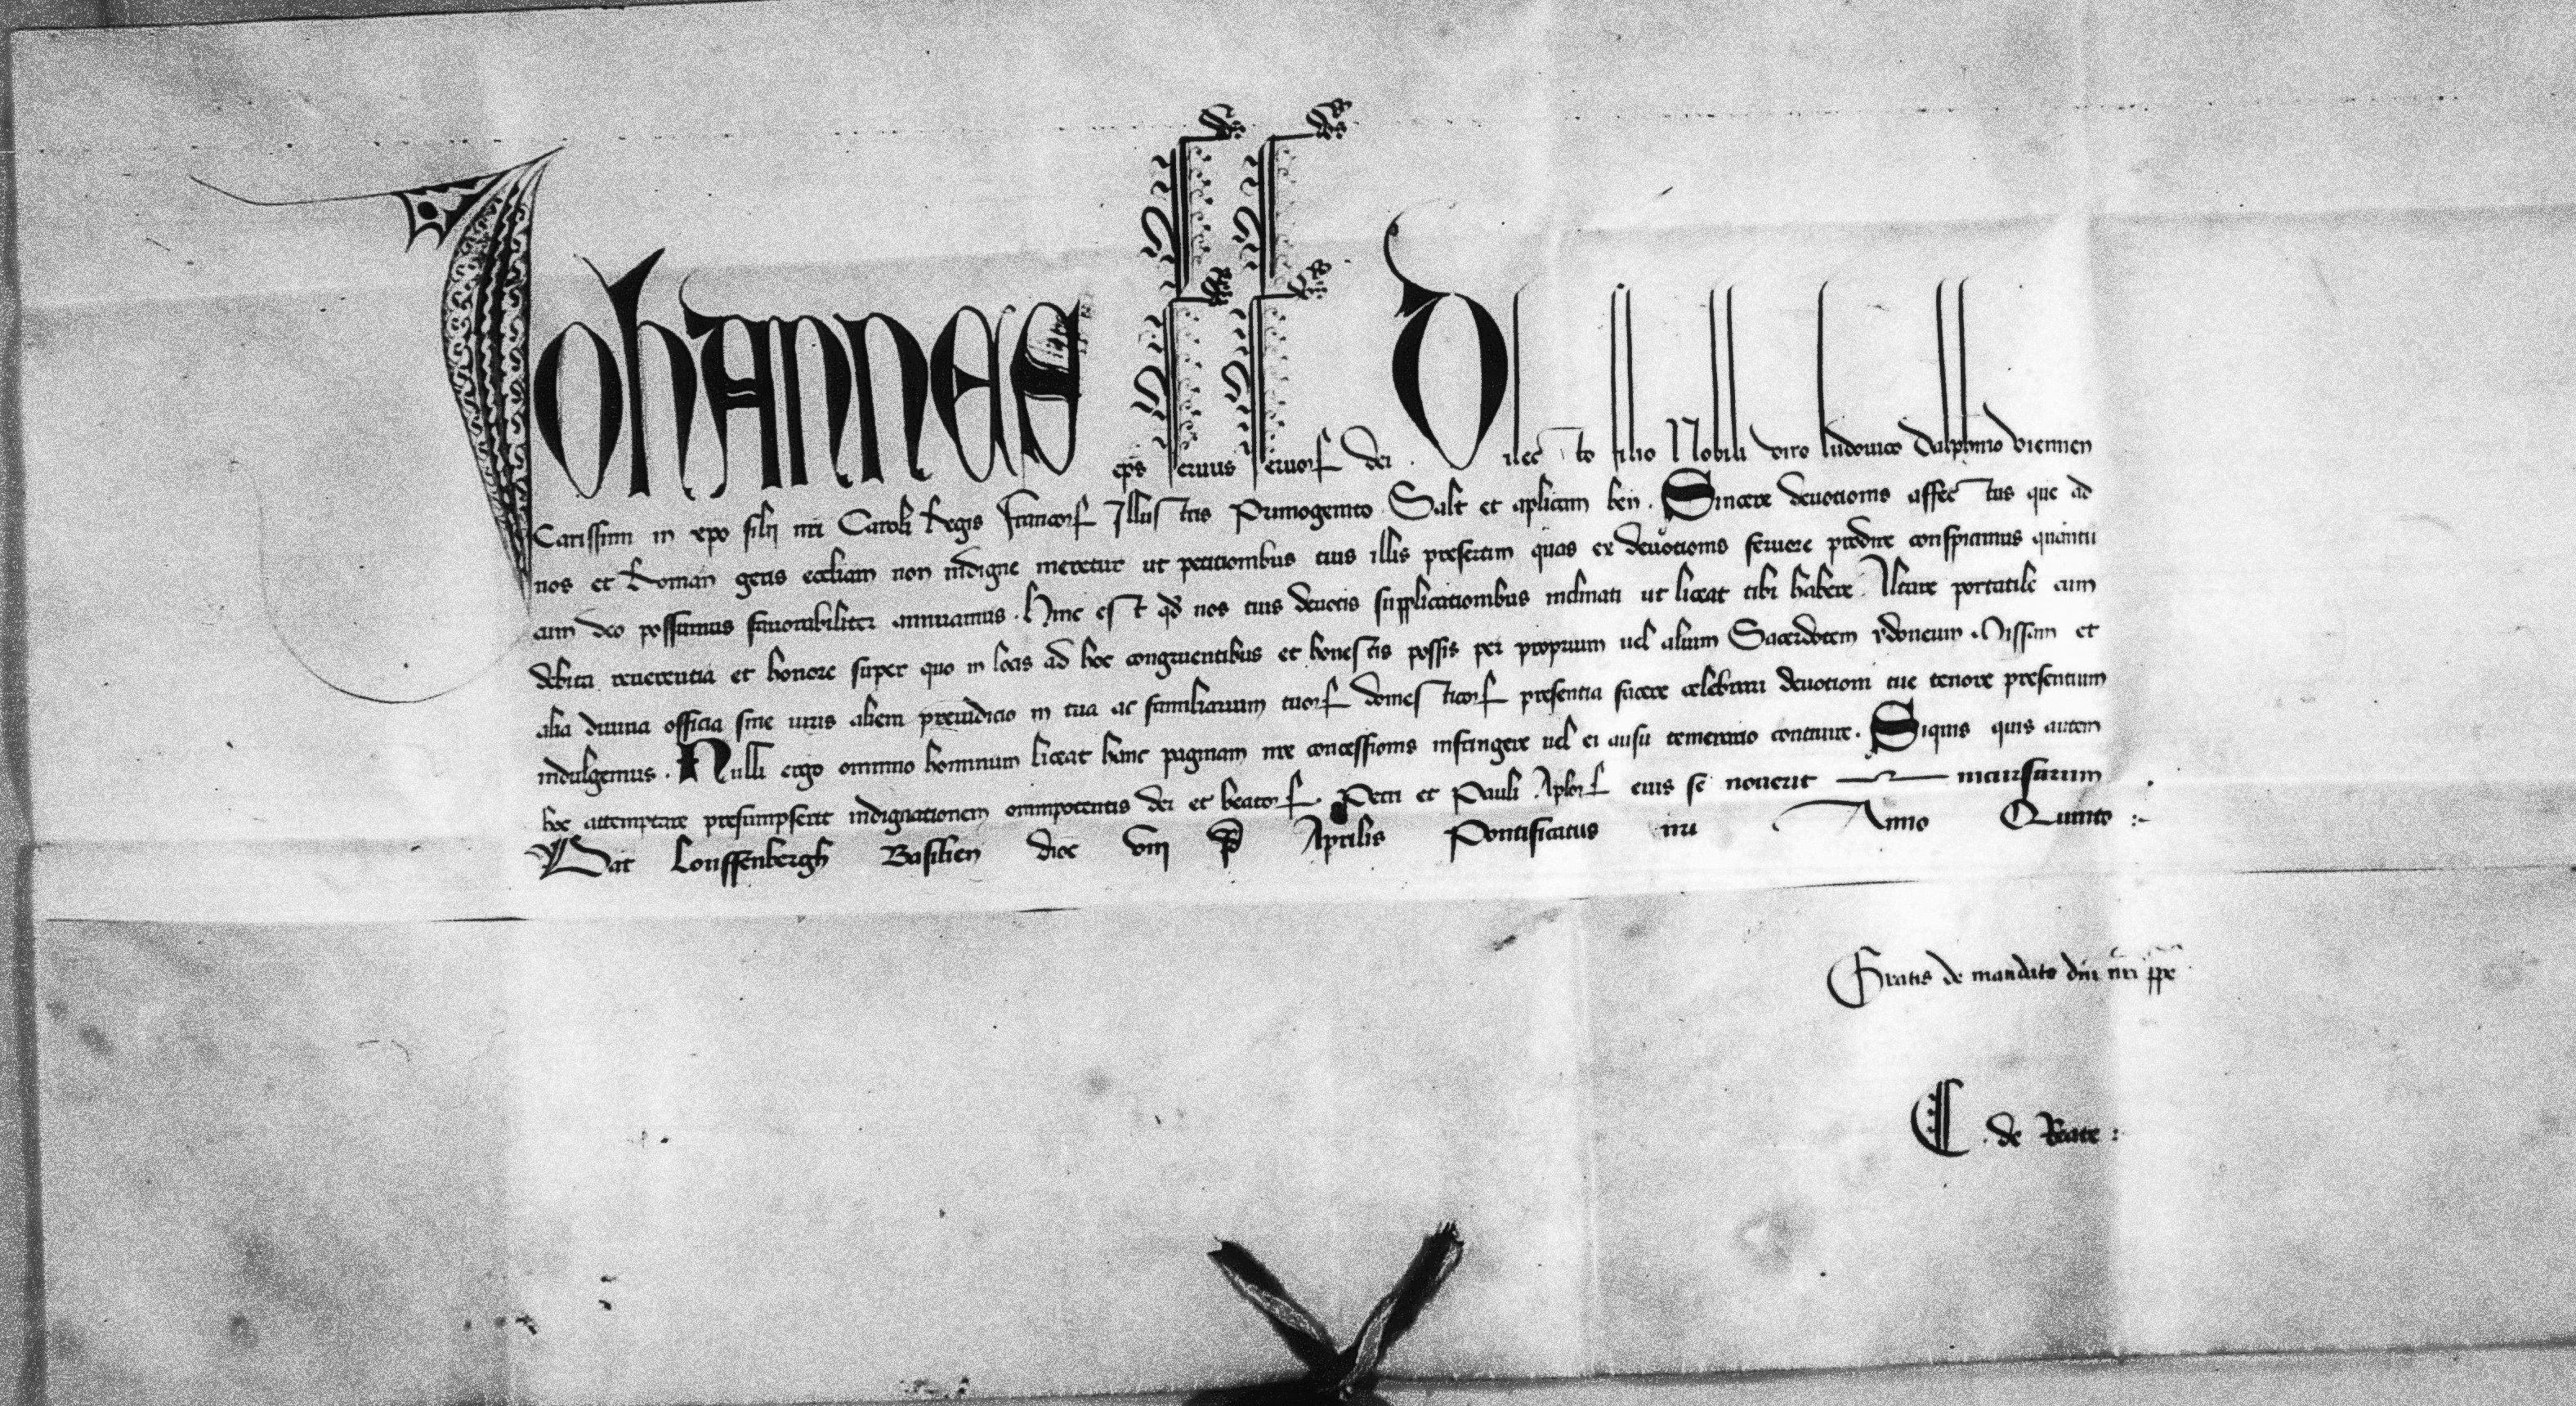 Johannes eps servus servoꝝ dei Dilecto filio Nobili viro ludovico Dalphino viennen
Carissimi in xpo filij nri Caroli Regis Francoꝝ Illustris Primogenito Salt et aplicam ben. Sincere devotionis affectus que ad
nos et Roman geris eccliam non indigne meretur ut petitionibus tuis illis presertim quas ex devotionis fervore prodire conspicimus quantu
cum deo possumus favorabiliter annuamus. Hinc est qd nos tuis devotis supplicationibus inclinati ut liceat tibi habere Altare portatile cum
debita reverentia et honore super quo in locis ad hoc congruentibus et honestis possis per proprium vel alium Sacerdotem ydoneum Missam et
alia divina officia sine iuris alieni preiudicio in tua ac familiarium tuoꝝ domesticoꝝ presentia facere celebrari devotioni tue tenore presentium
indulgemus. Nulli ergo omnino hominum liceat hanc paginam nre concessionis infringere vel ei ausu temerario contraire. Siquis quis autem
hoc attemptare presumpserit indignationem omnipotentis dei et beatoꝝ Petri et Pauli Aploꝝ eius se noverit incursurum
Dat Louffenbergh Basilien dioc viij Aprilis Pontificatus nri Anno Quinto :-
Gratis de mandato dni nri ppe
de Reate :